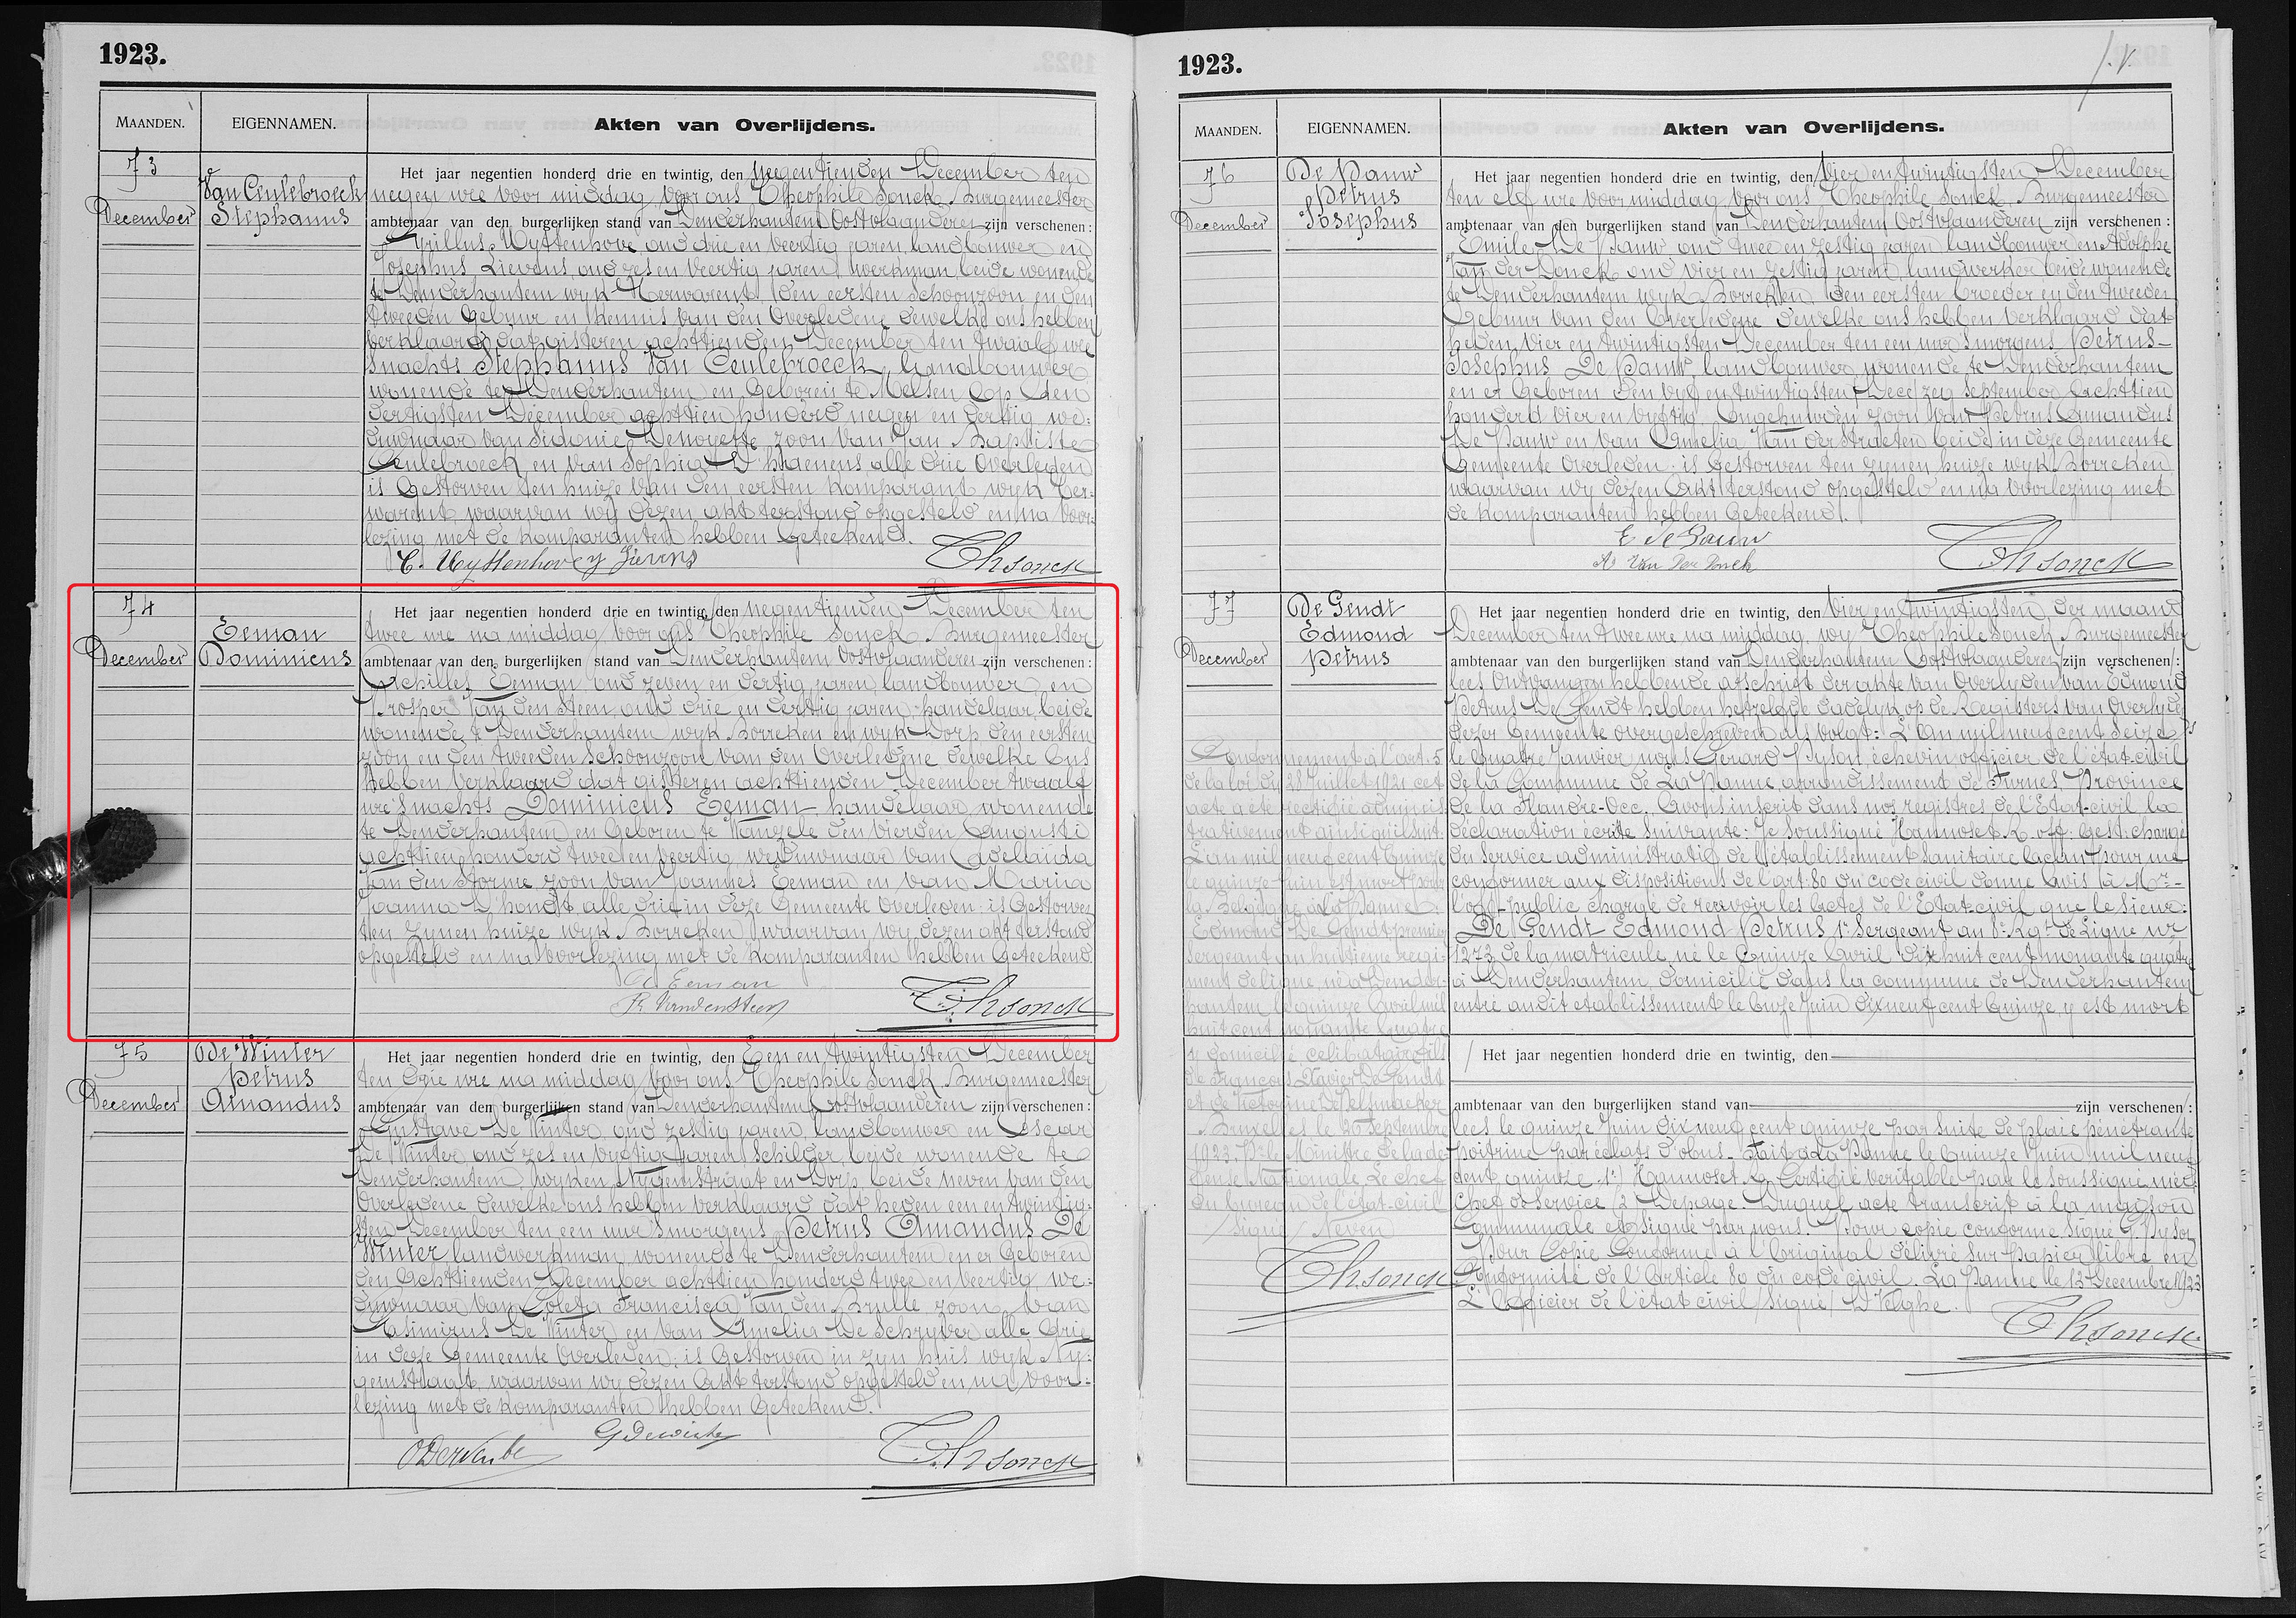 1923.
MAANDEN. EIGENNAMEN. Akten van Overlijdens.
73
December
Van Ceulebroeck
Stephanus
Het jaar negentien honderd drie en twintig, den negentienden December ten
negen ure voor middag, voor ons Theophile Sonck, Burgemeester
ambtenaar van den burgerlijken stand van Denderhautem Oostvlaanderen zijn verschenen :
Cyrillus Uyttenhove, oud drie en veertig jaren, landbouwer en
Josephus Lievens, oud zes en veertig jaren, werkman beide wonende
te Denderhautem wyk Herwarent, den eersten schoonzoon en den
tweeden Gebuur en kennis van den Overledene dewelke ons hebben
verklaard dat gisteren achttienden December ten twaalf ure
snachts Stephanus Van Ceulebroeck, landbouwer
wonende te Denderhautem en Geboren te Melsen op den
dertigsten December achttien honderd negen en dertig we:
duwnaar van Sidonie Denoyette, zoon van Jan Baptiste
Ceulebroeck en van Sophia D'haenens, alle drie Overleden
is Gestorven ten huize van den eersten komparant wyk Her-
warent, waarvan wy dezen akt terstond opgesteld en na voor-
lezing met de komparanten hebben Geteekend.
C. Uyttenhove J Lievens Th Sonck
74
December
Eeman
Dominicus
Het jaar negentien honderd drie en twintig, den negentienden December ten
twee ure na middag voor ons Theophile Sonck, Burgemeester
ambtenaar van den burgerlijken stand van Denderhautem Oostvlaanderen zijn verschenen :
Achilles Eeman oud zeven en dertig jaren, landbouwer, en
Prosper Van den Steen, oud drie en dertig jaren, handelaar, beide
wonende te Denderhautem wyk Borreken en wyk Dorp den eersten
zoon en den tweeden schoonzoon van den Overledene dewelke Ons
hebben verklaard dat gisteren achttienden December twaalf
ure snachts Dominicus Eeman handelaar, wonende
te Denderhautem en Geboren te Wanzele den vierden Augusti
achttien honderd twee en veertig, weduwnaar van Adelaida
Van den Storme, zoon van Joannes Eeman en van Maria
Joanna D'hondt alle drie in deze Gemeente Overleden: is Gestorven
ten zynen huize wyk Borreken, waarvan wy dezen akt terstond
opgesteld en na voorlezing met de komparanten hebben Geteekend.
A. Eeman
P. Vandensteen Th Sonck
75
December
De Winter
Petrus
Amandus
Het jaar negentien honderd drie en twintig, den Een en twintigsten December
ten drie ure na middag voor ons Theophile Sonck, Burgemeester
ambtenaar van den burgerlijken stand van Denderhautem Oostvlaanderen zijn verschenen :
Gustave De Winter, oud zestig jaren, landbouwer en Oscar
De Winter oud zes en vyftig jaren Schilder, beide wonende te
Denderhautem, wyken Nygemstraat en Dorp, beide neven van den
Overledene dewelke ons hebben verklaard dat heden een en twintig-
sten December ten een uur 'smorgens, Petrus Amandus De
Winter, landwerkman, wonende te Denderhautem en er Geboren
den Achttienden December achttien honderd twee en veertig we:
duwnaar van Coleta Francisca Van den Brulle, zoon van
Casimirus De Winter en van Amelia De Schryver alle drie
in deze Gemeente Overleden; is Gestorven in zyn huis wyk Ny:
gemstraat, waarvan wy dezen Akt terstond opgesteld en na voor-
lezing met de komparanten hebben Geteekend.
G Dewinter
Th Sonck
1923.
MAANDEN. EIGENNAMEN. Akten van Overlijdens.
76
December
De Pauw
Petrus
Josephus
Het jaar negentien honderd drie en twintig, den Vier en twintigsten December
ten elf ure voormiddag voor ons Theophile Sonck, Burgemeester
ambtenaar van den burgerlijken stand van Denderhautem Oostvlaanderen zijn verschenen :
Emile De Pauw, oud twee en zestig jaren, landbouwer en Adolphe
Van der Donck oud vier en zestig jaren, landwerker beide wonende
te Denderhautem wyk Borreken den eersten broeder en den tweeden
Gebuur van den Overledene dewelke ons hebben verklaard dat
heden, vier en twintigsten December ten een uur 'smorgens Petrus-
Josephus De Pauw, landbouwer, wonende te Denderhautem
en er Geboren den vyf en twintigsten Dece/zeg September Achttien
honderd vier en vyftig Ongehuwden zoon van Petrus Amandus
De Pauw en van Amelia Van der Straeten beide in deze Gemeente
Gemeente Overleden: is Gestorven ten zynen huize wyk Borreken
waarvan wy dezen Akt terstond opgesteld en na voorlezing met
de komparanten hebben Geteekend.
E. de Pauw
Ad Van Der Donck Th Sonck
77
December
De Gendt
Edmond
Petrus
Het jaar negentien honderd drie en twintig, den Vier en twintigsten der maand
December ten twee ure na middag, wy Theophile Sonck Burgemeester
ambtenaar van den burgerlijken stand van Denderhautem Oostvlaanderen zijn verschenen :
lees Ontvangen hebbende afschrift der akte van Overlyden van Edmond
Petrus De Gendt hebben hetzelfde dadelyk op de Registers van Overlyden
dezer Gemeente overgeschreven als volgt: L'an mil neuf cent Seize
le Quatre Janvier, nous Gerard Pyson, échevin, officier de l'état-civil
de la Commune de La Panne arrondissement de Furnes, Province
de la Flandre-Occ. Avons inscrit dans nos registres de l'Etat-civil la
déclaration écrite suivante: Je soussigné Hannoset R. off. Gest. chargé
du Service administratif de l'établissement Sanitaire l'océan pour me
conformer aux dispositions de l'art. 80 du code civil donne Avis à Mr-
l'off-public chargé de recevoir les Actes de l'Etat-civil que le Sieur:
De Gendt Edmond Petrus 1r Sergeant au 8e Rgt de Ligne nr
1273 de la matricule, né le Quinze Avril dix huit cent nonante quatre
à Denderhautem, domicilié dans la commune de Denderhautem
entré audit etablissement le Onze Juin dix neuf cent Quinze y est mort
Conformement à l'art. 5
de la loi du 28 Juillet 1921 cet
acte a été rectifié adminis
trativement ainsi qu'il suit:
L'an mil neuf cent Quinze
le quinze Juin est mort pour
la Belgique à La Panne
Edmond De Gendt premier
sergeant au huitieme regi-
ment de ligne, né à Dender-
hautem le quinze Avril mil
huit cent nonante Quatre
y domicilié célibataire fils
de François Xavier De Gendt
et de Victorine De Pelsmaeker
Bruxelles le 20 Septembre
1923. Pr le Ministre de la dé
fense Nationale Le chef
du bureau de l'état-civil
/signé/ Neven
Th Sonck
Het jaar negentien honderd drie en twintig, den
ambtenaar van den burgerlijken stand van zijn verschenen :
lees le quinze Juin dix neuf cent quinze par suite de plaie pénétrante
poitrine par éclats d'obus. Fait à La Panne le Quinze Juin mil neuf
cent quinze. 1°) Hannoset R. Certifié véritable par le soussigné méd
chef de service 2) Depage. Duquel acte transcrit à la maison
Communale et signé par nous. Pour copie conforme signé G. Pyson
Pour Copie Conforme à l'original délivré Sur Papier libre en
Conformité de l'Article 80 du code civil. La Panne le 13 Decembre 1923
L'officier de l'état civil /Signé/ D'Velghe.
Th Sonck